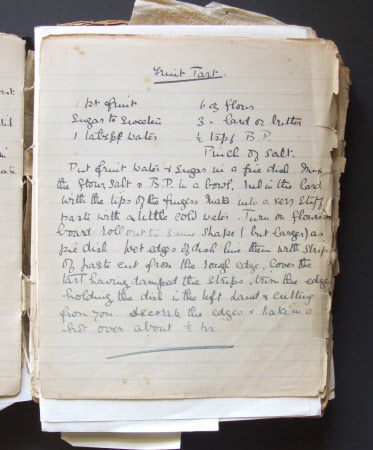 Fruit Tart.
1 pt fruit 6 oz flour
Sugar to Sweeten 3 " lard or butter
1 tablespf water ½ tspf B.P.
Pinch of Salt.
Put fruit water & Sugar in a pie dish. Mix
the flour Salt & B.P. in a bowl, rub in the lard
with the tips of the fingers make into a very stiff
paste with a little cold water. Turn on floured
board roll out to same shape (but larger) as
pie dish. Wet edges of dish line them with strips
of paste cut from the rough edge. Cover the
tart having damped the strips, trim the edges
holding the dish in the left hand & cutting
from you. Decorate the edges & bake in a
hot oven about ½ hr